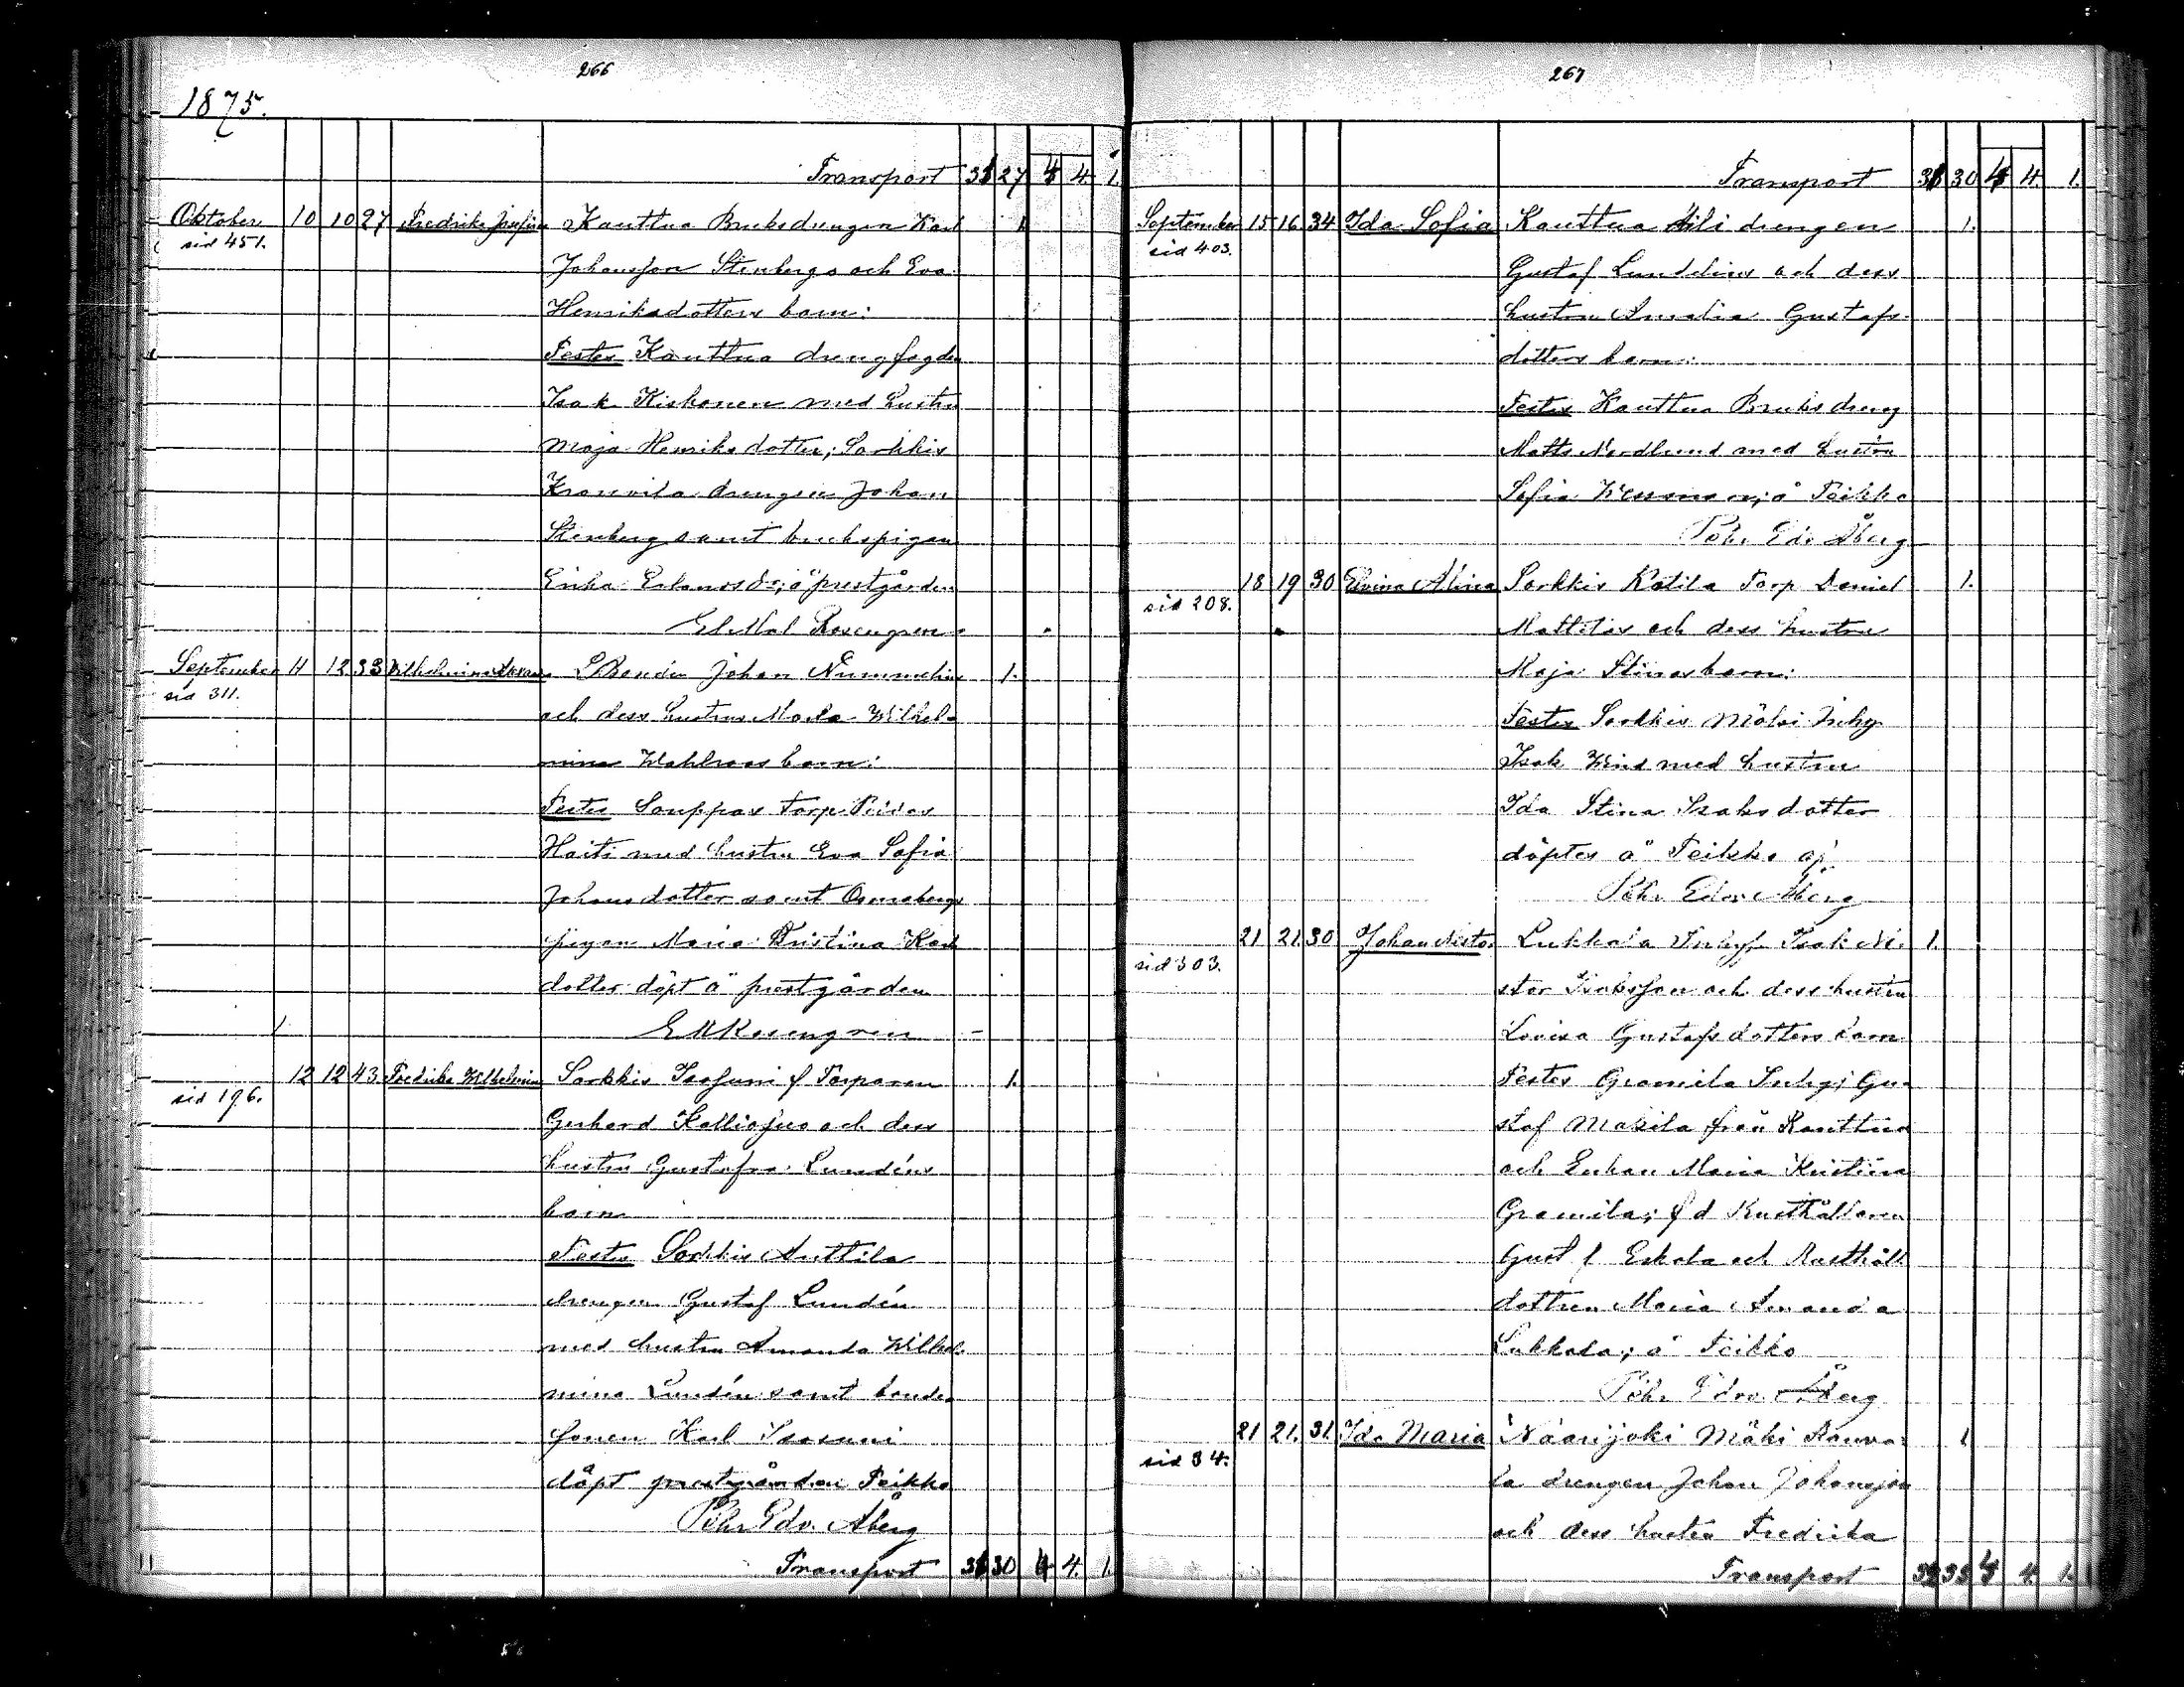 266
1875.
Transport 31 27 4 4. 1.
Oktober 10 10 27 Fredrika Josefina Kauttua Bruksdrengen Karl 1
sid 451.
Johansson Stenbergs och Eva
Henriksdotters barn:
Testes Kauttua drengfogden
Isak Kiskonen med hustru
Maja Henriksdotter; Sorkkis
drengen Johan
Stenberg samt brukspigan
Erika å prestgården
Rosengren
September 11 12 33 Wilhelmina Johan Nummelin 1.
sid 311.
och dess hustrus Maria Wilhel-
mina Wahlroos barn:
Testes Souppas Torp
Haiti med hustru Eva Sofia
Johansdotter samt
pigan Maria Kristina Karls
dotter döpt å prestgården
Rosengren
12 12 43 Fredrika Wilhelmina Sorkkis Isosuni f Torparen 1.
sid 196.
Gerhard Kalliofus och dess
hustru Gustafva Lundéns
barn
Testes Sorkkis Anttila
drengen Gustaf Lundén
med hustru Amanda Wilhel-
mina Lundén samt bonde
sonen Karl Isosuni
döpt prestgården Teikko
Pehr Edv. Åberg
Transport 31 30 4 4. 1.
267
Transport 31 30 4 4. 1.
September 15 16 34 Ida Sofia Kauttua drengen 1.
sid 403.
Gustaf Lundelins och dess
hustru Amalia Gustafs-
dotters barn:
Testes Kauttua Bruksdreng
Matts Nordlund med hustru
Sofia å Teikko
Pehr Edv Åberg
18 19 30 Elvina Alina Sorkkis Kotila Torp Daniel 1.
sid 208.
Mattilas och dess hustru
Maja Stinas barn:
Testes Sorkkis Mäki Inhys
Isak Wind med hustru
Ida Stina Isaksdotter
döptes å Teikko af
Pehr Edv Åberg
21 21. 30 Johan Nestor Lukkala Inhys Isak Ne- 1.
sid 303.
stor Isaksson och dess hustru
Lovisa Gustafsdotters barn
Testes Gramila Inhys Gu-
staf Makila från Kauttua
och Enkan Maria Kristina
Gramila; f d Rusthållaren
Gust f Eskola och Rusthåll
dottren Maria Amanda
Lukkala; å Teikko
Pehr Edv. Åberg
21 21. 31. Ida Maria Naarijoki Mäki Rauva- 1
sid 34.
la drengen Johan Johansson
och dess hustru Fredrika
Transport 32 33 4 4. 1.